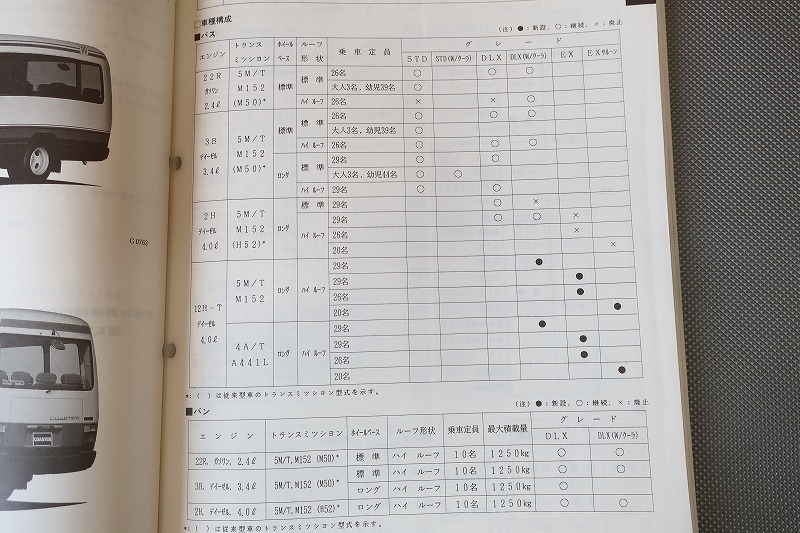 □車種構成
■バス
(注) ●:新設, ○:継続, ×:廃止
エンジン トランスミツシヨン ホイールベース ルーフ形状 乗車定員 グレード
STD STD(W/クーラ) DLX DLX(W/クーラ) EX EXサルーン
22R ガソリン 2.4ℓ 5M/T M152 (M50)* 標準 標準 26名 ○ ○ ○
大人3名, 幼児39名 ○
ハイ ルーフ 26名 × × ○
3B デイーゼル 3.4ℓ 5M/T M152 (M50)* 標準 標準 26名 ○ ○ ○
大人3名, 幼児39名 ○
ハイ ルーフ 26名 ○ ○ ○
ロング 標準 29名 ○ ○
大人3名, 幼児44名 ○ ○
ハイ ルーフ 29名 ○ ○
2H デイーゼル 4.0ℓ 5M/T M152 (H52)* ロング 標準 29名 ○ ×
ハイ ルーフ 29名 ○ ○ ×
26名 ×
20名 ×
12H-T デイーゼル 4.0ℓ 5M/T M152 ロング ハイ ルーフ 29名 ●
29名 ●
26名 ●
20名 ●
4A/T A441L ロング ハイ ルーフ 29名 ●
29名 ●
26名 ●
20名 ●
*:( )は従来型車のトランスミツシヨン型式を示す。
■バン
(注) ●:新設, ○:継続, ×:廃止
エンジン トランスミツシヨン ホイールベース ルーフ形状 乗車定員 最大積載量 グレード
DLX DLX(W/クーラ)
22R, ガソリン, 2.4ℓ 5M/T, M152 (M50)* 標準 ハイ ルーフ 10名 1250kg ○ ○
3B, デイーゼル, 3.4ℓ 5M/T, M152 (M50)* 標準 ハイ ルーフ 10名 1250kg ○ ○
ロング ハイ ルーフ 10名 1250kg ○
2H, デイーゼル, 4.0ℓ 5M/T, M152 (H52)* ロング ハイ ルーフ 10名 1250kg ○ ○
*:( )は従来型車のトランスミツシヨン型式を示す。
G0763
COASTER